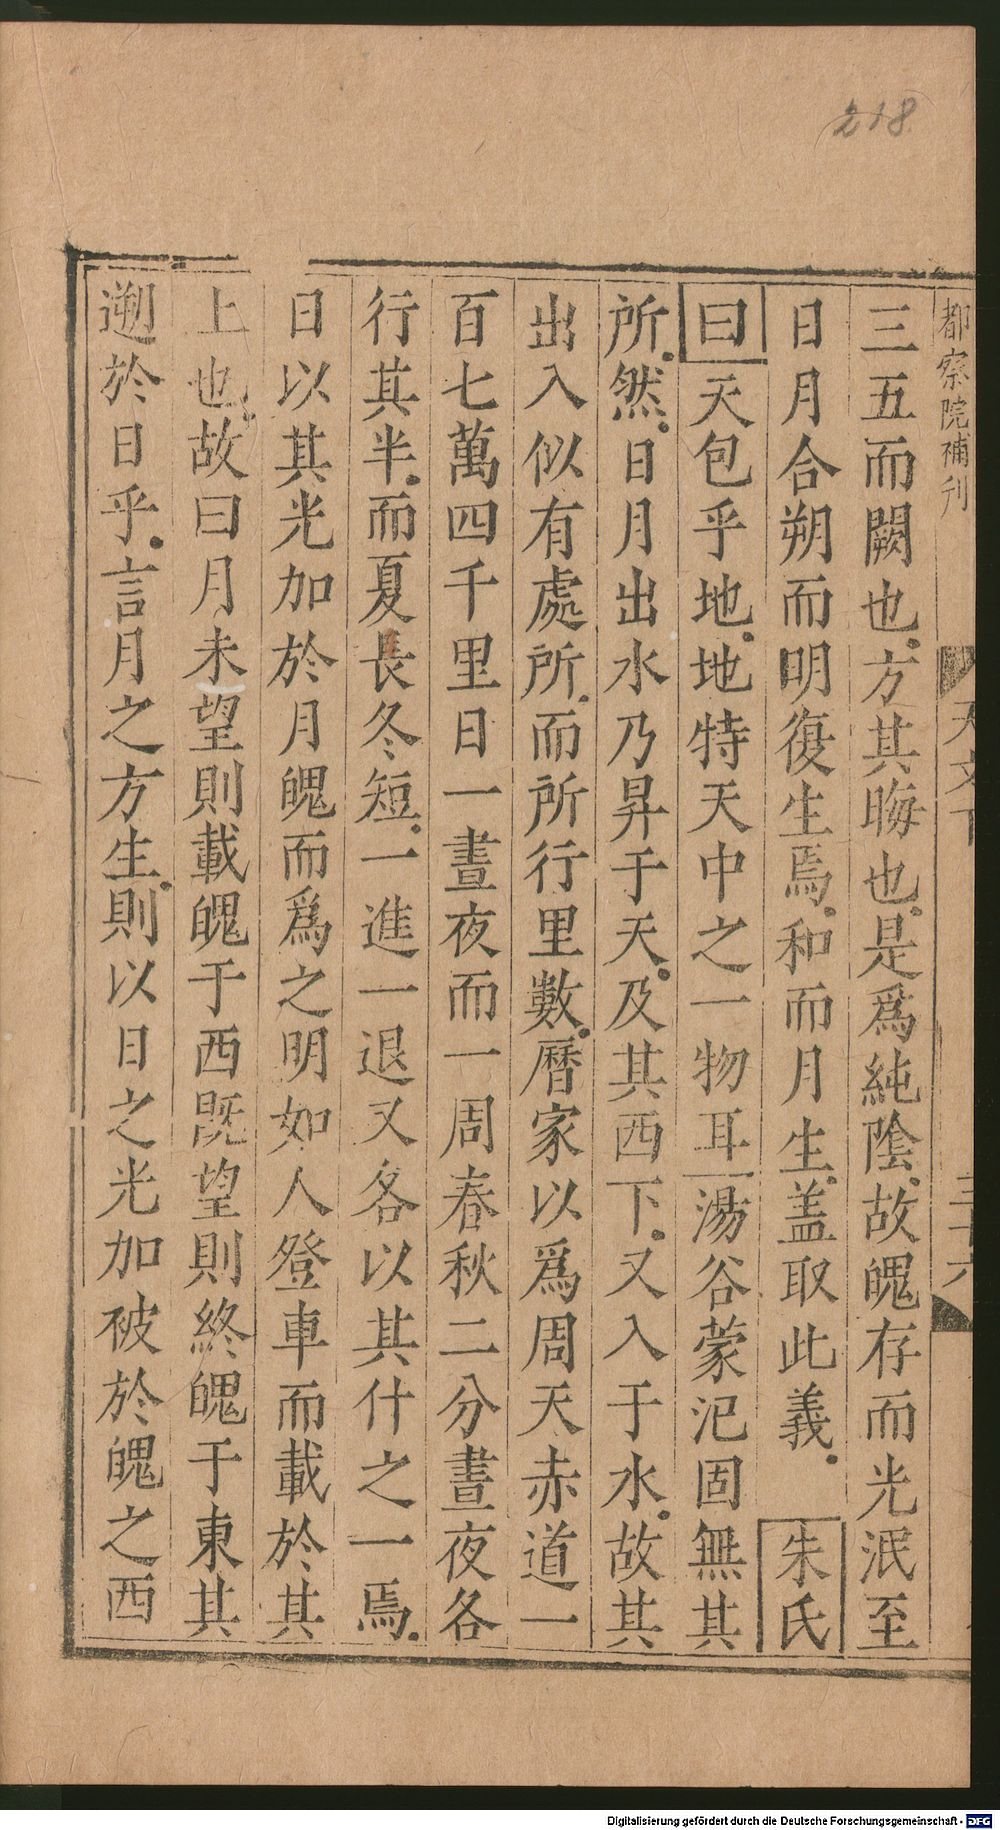 218
都察院補刊
天文下
三十六
三五而闕也方其晦也是爲純陰故魄存而光泯至
日月合朔而明復生焉和而月生盖取此義　朱氏
曰天包乎地地特天中之一物耳湯谷蒙汜固無其
所然日月出水乃昇于天及其西下又入于水故其
出入似有處所而所行里數曆家以爲周天赤道一
百七萬四千里日一晝夜而一周春秋二分晝夜各
行其半而夏長冬短一進一退又各以其什之一焉
日以其光加於月魄而爲之明如人登車而載於其
上也故曰月未望則載魄于西既望則終魄于東其
遡於日乎言月之方生則以日之光加被於魄之西
Digitalisierung gefördert durch die Deutsche Forschungsgemeinschaft - DFG